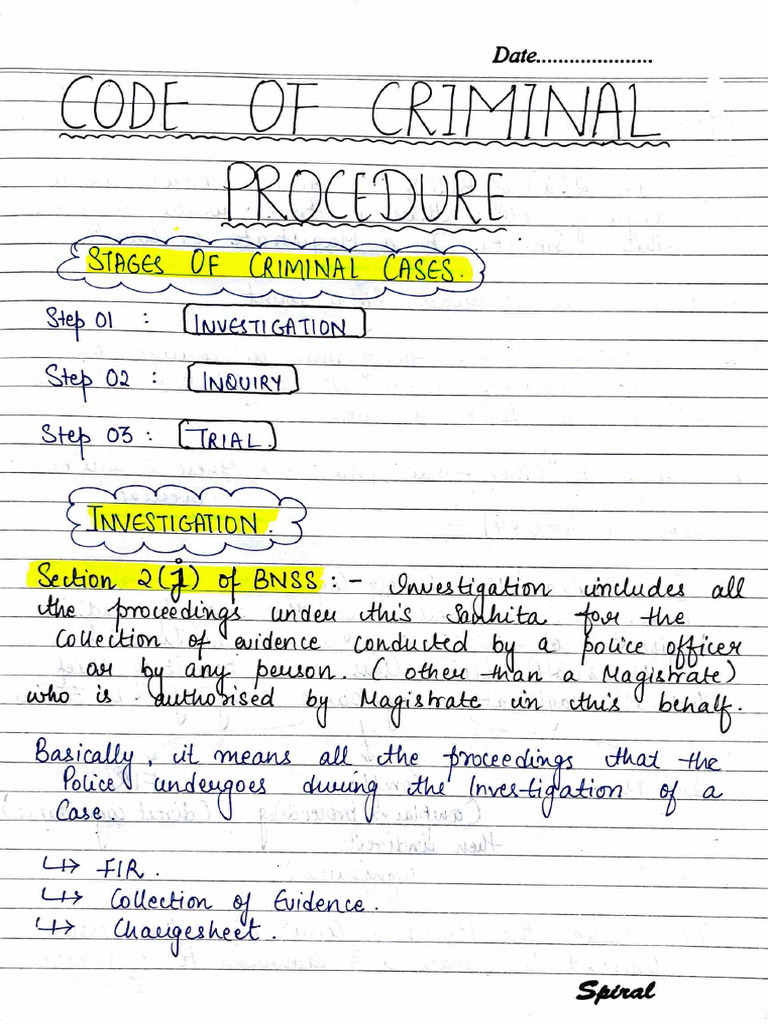 Date.....................
CODE OF CRIMINAL
PROCEDURE
STAGES OF CRIMINAL CASES.
Step 01 : INVESTIGATION
Step 02 : INQUIRY
Step 03 : TRIAL.
INVESTIGATION.
Section 2(j) of BNSS :- Investigation includes all
the proceedings under this Sanhita for the
collection of evidence conducted by a police officer
or by any person. (other than a Magistrate)
who is authorised by Magistrate in this behalf.
Basically, it means all the proceedings that the
Police undergoes during the Investigation of a
Case.
↪ FIR.
↪ Collection of Evidence.
↪ Chargesheet.
Spiral